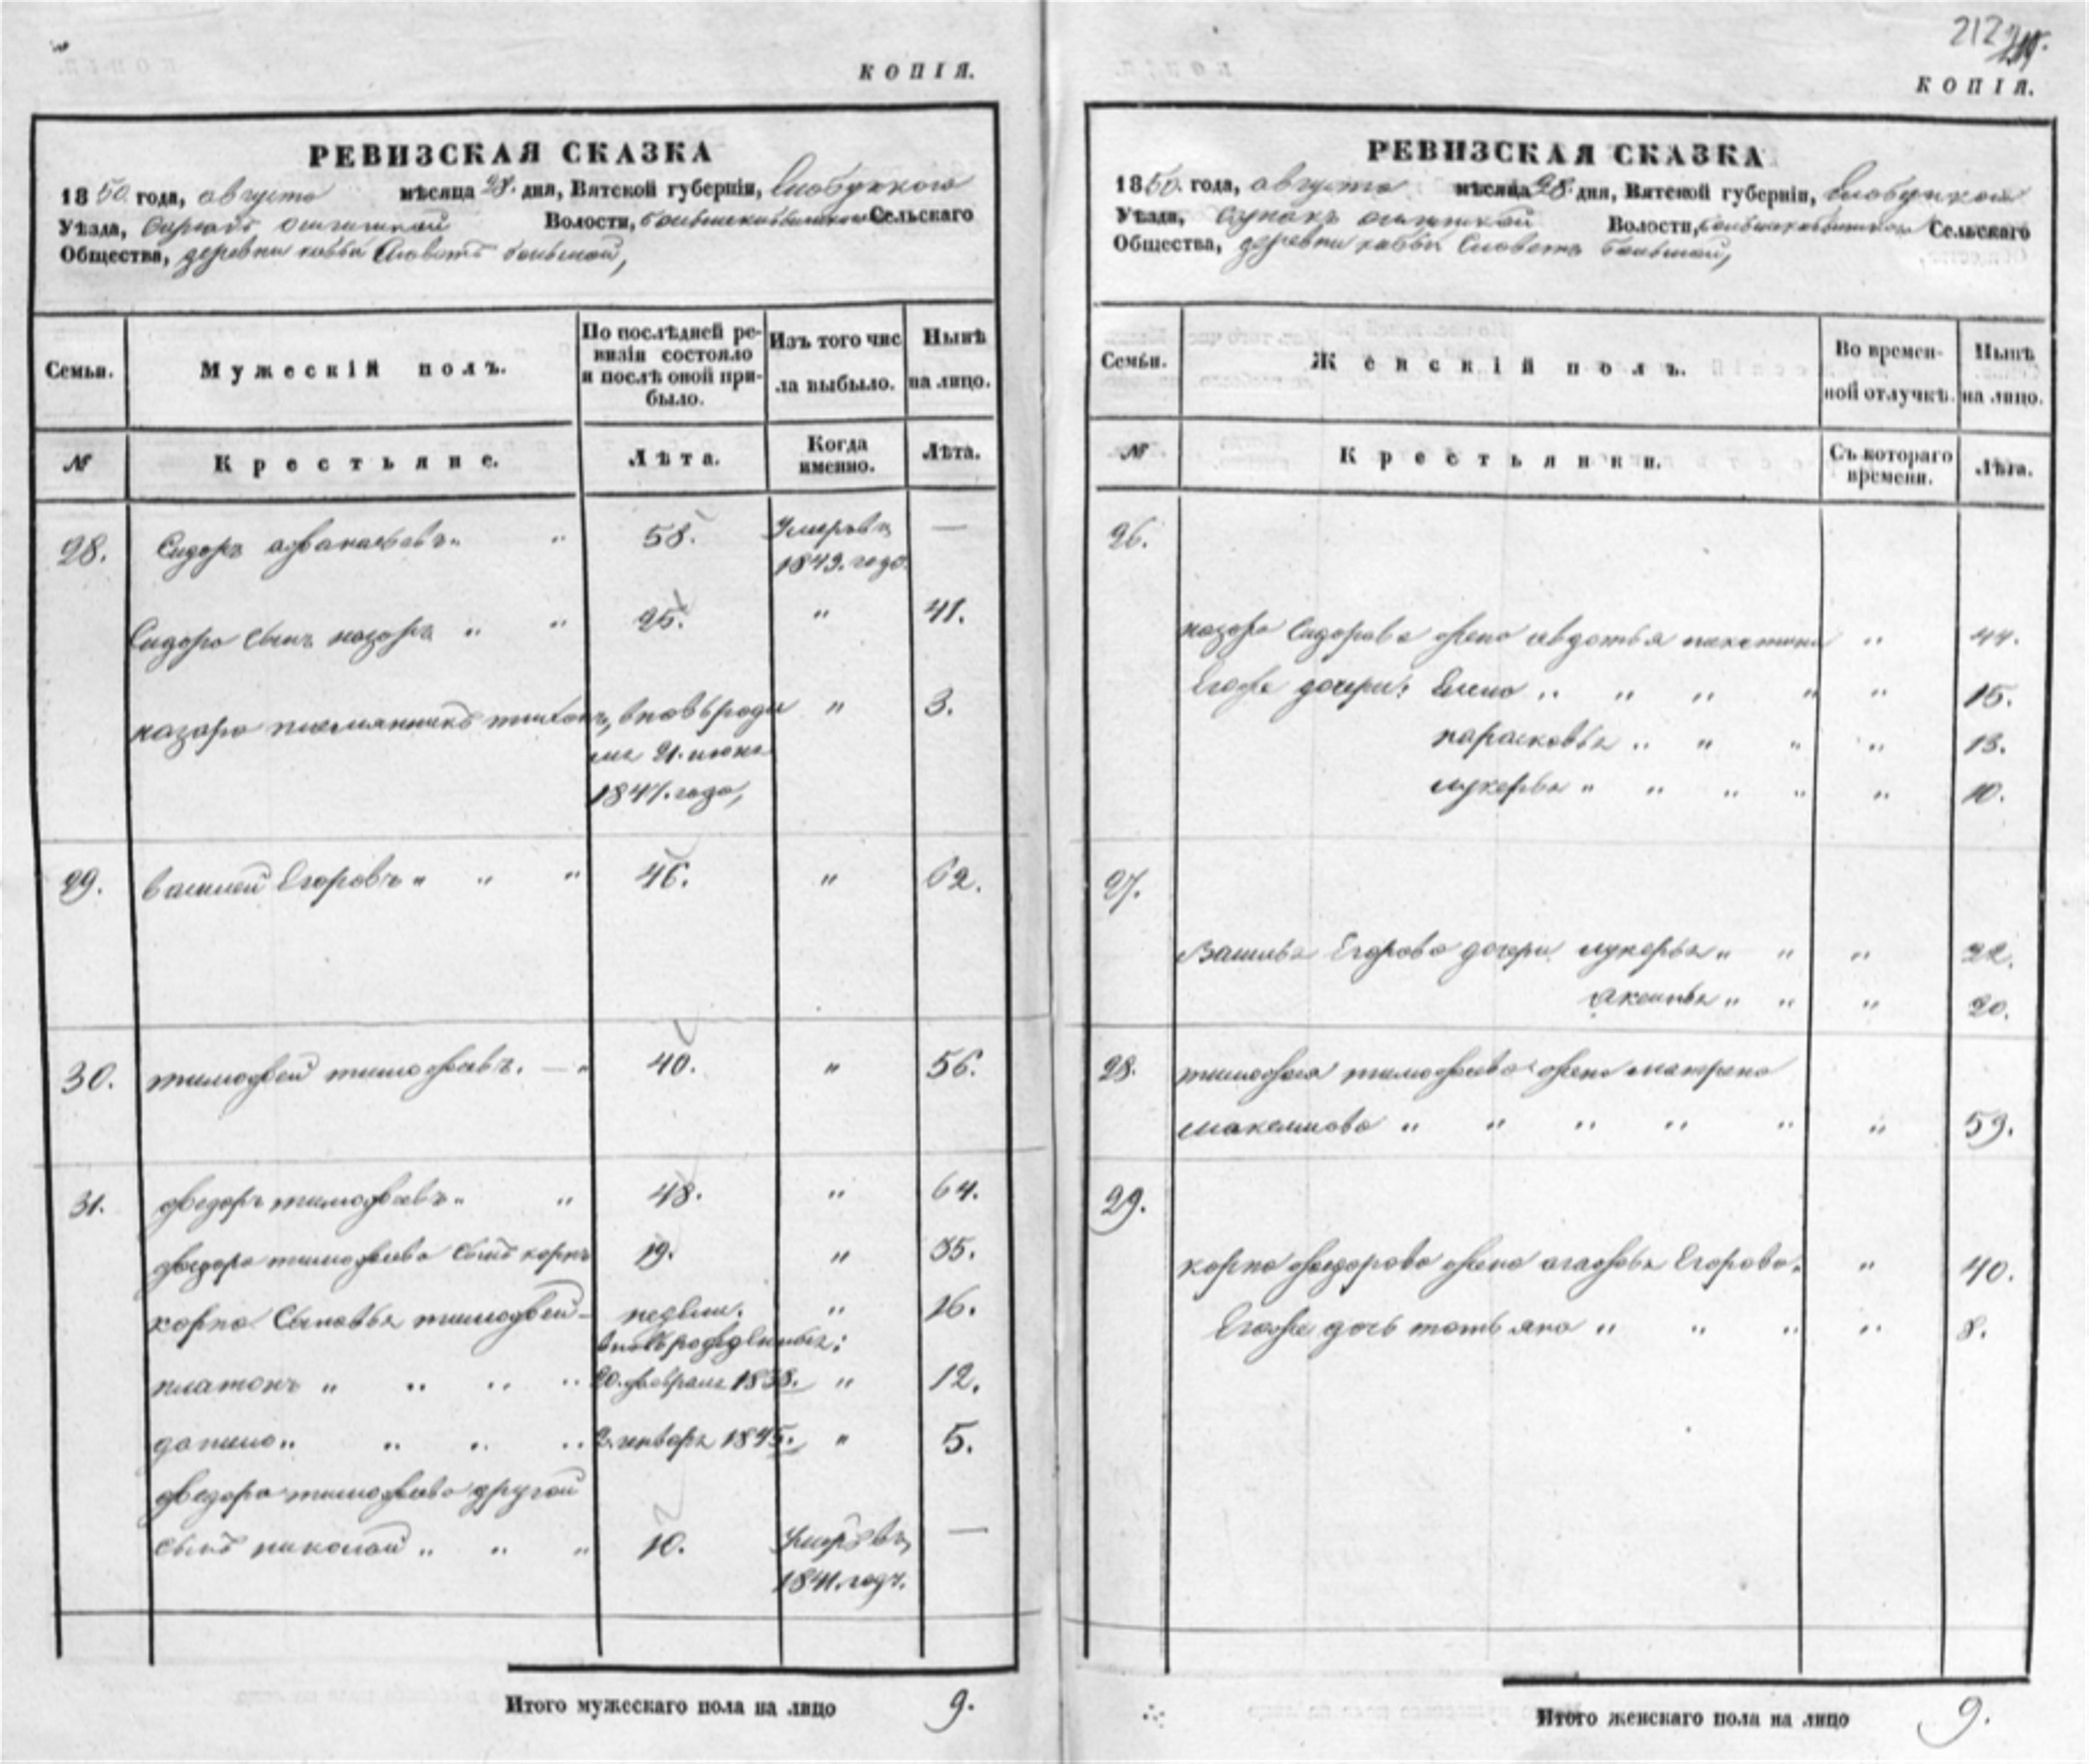 КОПІЯ.
РЕВИЗСКАЯ СКАЗКА
1850 года, августа мѣсяца 28. дня, Вятской губерніи, Слободскаго
Уѣзда, Волости, Сельскаго
Общества, деревни большой,
Семьи. Мужескій полъ. По послѣдней ре-визіи состояло и послѣ оной при-было. Изъ того чис ла выбыло. Нынѣ на лицо.
№ Крестьяне. Лѣта. Когда именно. Лѣта.
28. Сидоръ „ 58. Умеръ въ —
1849. годо.
Сидора сынъ назаръ „ „ 25. „ 41.
назара племянникъ тихонъ, вновь роди „ 3.
лся 21. июня
1847. года,
29. василей Егоровъ „ „ „ 46. „ 62.
30. тимофей тимофеевъ. — „ 40. „ 56.
31. федоръ тимофеевъ „ „ 48. „ 64.
федора тимофеева сынъ карпъ 19. „ 35.
карпа Сыновья тимофей – недели. „ 16.
вновьрожденные:
платонъ „ „ „ „ 20. февраля 1838. „ 12.
данило „ „ „ „ 2. генваря 1845. „ 5.
федора тимофеева другой
сынъ николай „ „ „ 10. Умеръ въ —
1841. годъ.
Итого мужескаго пола на лицо 9.
212
КОПІЯ.
РЕВИЗСКАЯ СКАЗКА
1850. года, августа мѣсяца 28. дня, Вятской губерніи, Слободской
Уѣзда, Волости, Сельскаго
Общества, деревни большой,
Семьи. Женскій полъ. Во времен-ной отлучкѣ. Нынѣ на лицо.
№ Крестьянки. Съ котораго времени. Лѣта.
26.
назара Сидорова жена авдотья никитина „ 44.
Егоже дочери: Елена „ „ „ „ „ 15.
парасковья „ „ „ „ 13.
лукерья „ „ „ „ „ 10.
27.
Василья Егорова дочери лукерья „ „ „ 22.
аксинья „ „ „ 20.
28. тимофея тимофеева жена матрена
максимова „ „ „ „ „ „ 59.
29.
карпа федорова жена агафья Егорова. „ 40.
Егоже дочь татьяна „ „ „ „ 8.
Итого женскаго пола на лицо 9.